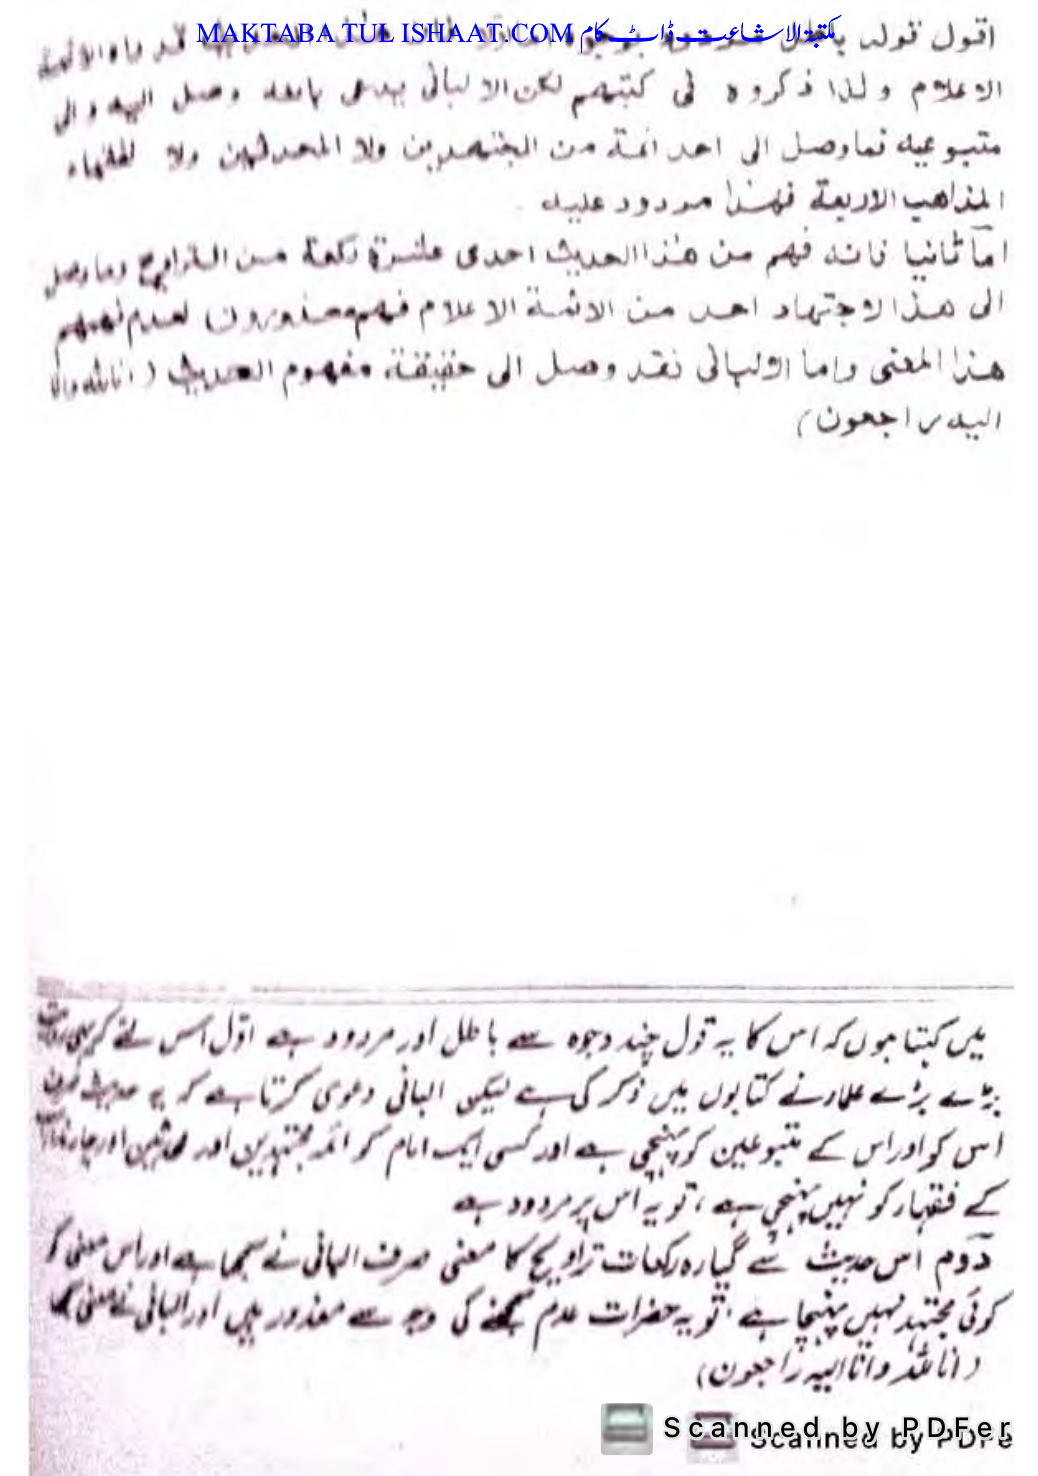 MAKTABA TUL ISHAAT.COM مکتبۃ الاشاعت ڈاٹ کام
اقول قوله
الاعلام ولذا ذكروه فى كتبهم لكن الالبانى يدعى بانه وصل اليه والى
متبوعيه فما وصل الى احد ائمة من المجتهدين ولا المحدثين ولا لفقهاء
المذاهب الاربعة فهذا مردود عليه
اما ثانيا فانه فهم من هذا الحديث احدى عشرة ركعة من التراويح وما وصل
الى هذا الاجتهاد احد من الائمة الاعلام فهم معذورون لعدم فهمهم
هذا المعنى واما الالبانى فقد وصل الى حقيقة مفهوم الحديث (انا لله وانا
اليه راجعون)
میں کہتا ہوں کہ اس کا یہ قول چند وجوہ سے باطل اور مردود ہے اوّل اس لئے کہ
بڑے بڑے علماء نے کتابوں میں ذکر کی ہے لیکن البانی دعوی کرتا ہے کہ یہ حدیث
اس کو اور اس کے متبوعین کو پہنچی ہے اور کسی ایک امام کو ائمہ مجتہدین اور محدثین اور چار
کے فقہاء کو نہیں پہنچی ہے ، تو یہ اس پر مردود ہے
دوم اس حدیث سے گیارہ رکعات تراویح کا معنی صرف البانی نے سمجھا ہے اور اس معنی کو
کوئی مجتہد نہیں پہنچا ہے ، تو یہ حضرات عدم سمجھنے کی وجہ سے معذور ہیں اور البانی نے معنی
(انا للہ وانا الیہ راجعون)
Scanned by PDFer
Scanned by PDFe